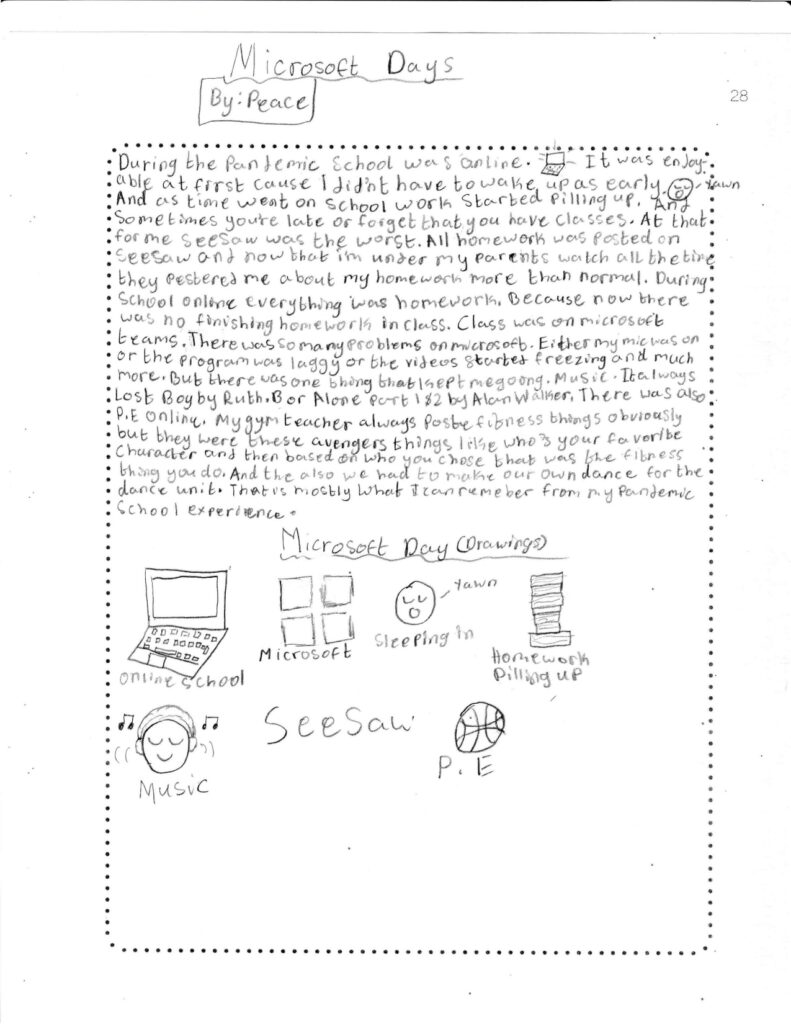 Microsoft Days
By: Peace
28
During the Pandemic School was online. It was enjoy-
able at first cause I didn't have to wake up as early. Yawn
And as time went on School work Started Pilling up. And
Sometimes you're late or forget that you have classes. At that
for me SeeSaw was the worst. All homework was Posted on
SeeSaw and now that i'm under my Parents watch all the time
they Pestered me about my homework more than normal. During
School online everything was homework. Because now there
was no finishing homework in class. Class was on microsoft
teams. There was so many problems on microsoft. Either my mic was on
or the program was laggy or the videos started freezing and much
more. But there was one thing that kept me goong. Music. It always
Lost Boy by Ruth.B or Alone Part 1&2 by Alan Walker. There was also
P.E Online. My gym teacher always Poste fitness things obviously
but they were these avengers things like who's your favorite
Character and then based on who you chose that was the fitness
thing you do. And the also we had to make our own dance for the
dance unit. That is mostly what I can remeber from my Pandemic
School experience.
Microsoft Day (Drawings)
Yawn
Online School
Microsoft
Sleeping in
Homework
Pilling up
Music
SeeSaw
P.E